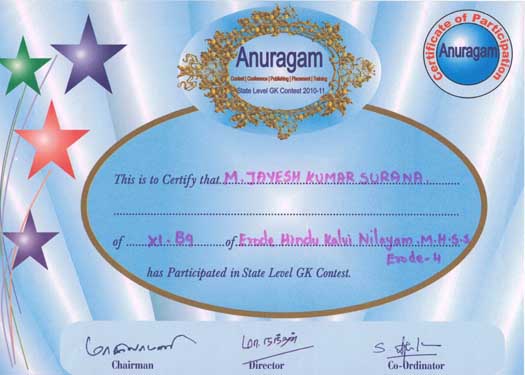 Anuragam
Contest | Conference | Publishing | Placement | Training
State Level GK Contest 2010-11
Certificate of Participation
Anuragam
This is to Certify that M. JAYESH KUMAR SURANA
of XI - B9 of Erode Hindu Kalvi Nilayam. M.H.S.S
Erode-4
has Participated in State Level GK Contest.
Chairman
Director
Co-Ordinator